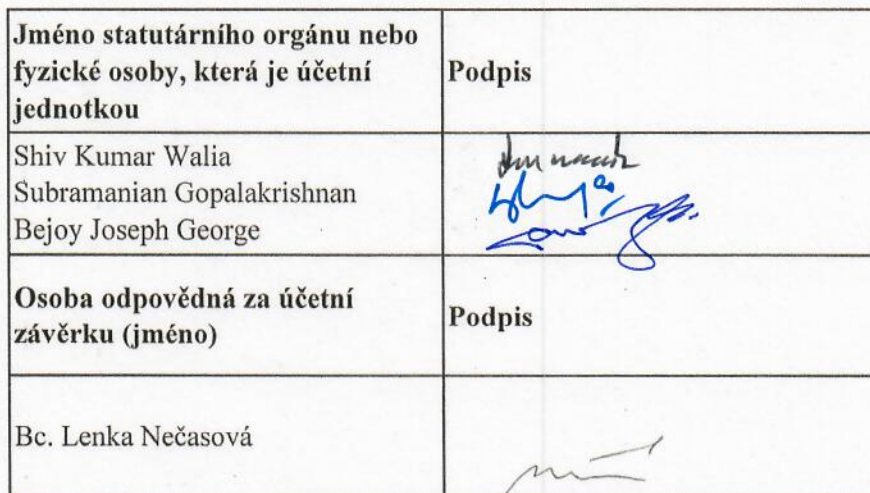 Jméno statutárního orgánu nebo
fyzické osoby, která je účetní
jednotkou
Podpis
Shiv Kumar Walia
Subramanian Gopalakrishnan
Bejoy Joseph George
Osoba odpovědná za účetní
závěrku (jméno)
Podpis
Bc. Lenka Nečasová